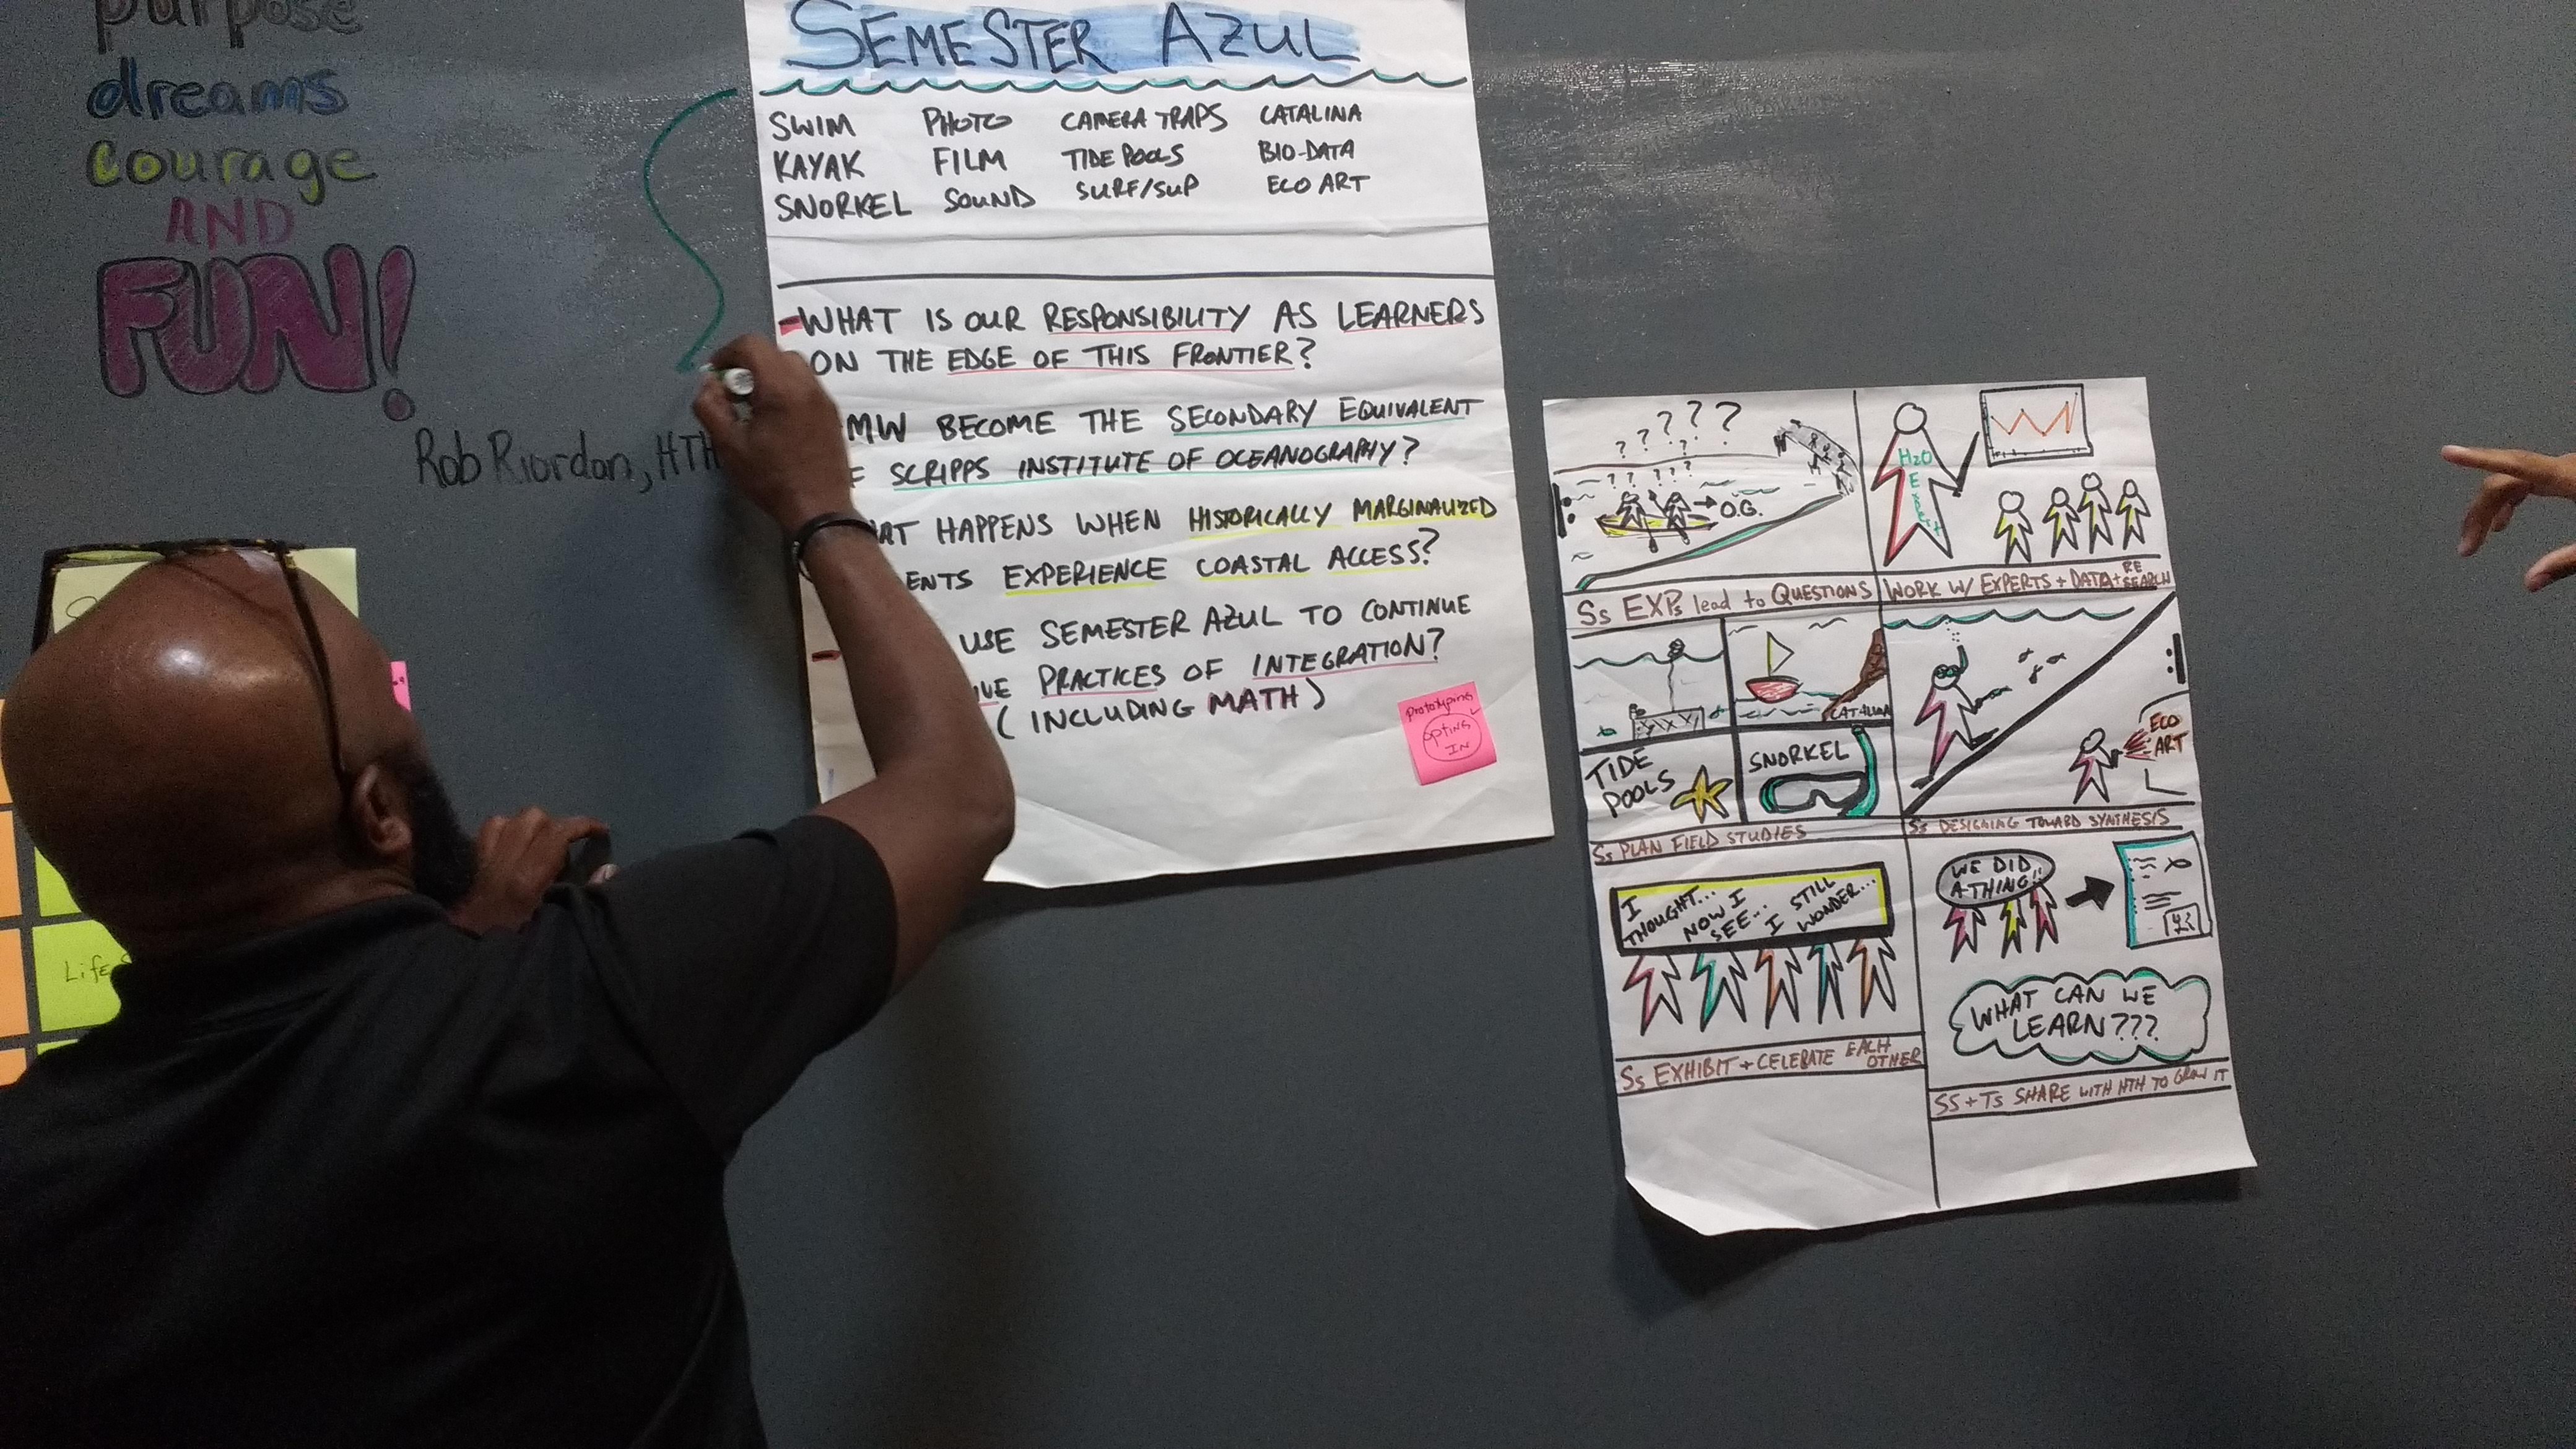 purpose
dreams
courage
AND
FUN!
Rob Riordan, HTH
Life
SEMESTER AZUL
SWIM PHOTO CAMERA TRAPS CATALINA
KAYAK FILM TIDE POOLS BIO-DATA
SNORKEL SOUND SURF/SUP ECO ART
-WHAT IS OUR RESPONSIBILITY AS LEARNERS
ON THE EDGE OF THIS FRONTIER?
MW BECOME THE SECONDARY EQUIVALENT
SCRIPPS INSTITUTE OF OCEANOGRAPHY?
HAPPENS WHEN HISTORICALLY MARGINALIZED
ENTS EXPERIENCE COASTAL ACCESS?
USE SEMESTER AZUL TO CONTINUE
PRACTICES OF INTEGRATION?
(INCLUDING MATH)
prototyping
opting
IN
? ? ? ? ?
? ? ? ?
→ O.G.
H2O
Expert
Ss EXPs lead to QUESTIONS
WORK W/ EXPERTS + DATA + RESEARCH
CATALINA
TIDE
POOLS
SNORKEL
ECO
ART
Ss PLAN FIELD STUDIES
Ss DESIGNING TOWARD SYNTHESIS
I THOUGHT...
NOW I SEE...
I STILL WONDER...
WE DID
A THING!!
WHAT CAN WE
LEARN???
Ss EXHIBIT + CELEBRATE EACH OTHER
SS + Ts SHARE WITH HTH TO GROW IT